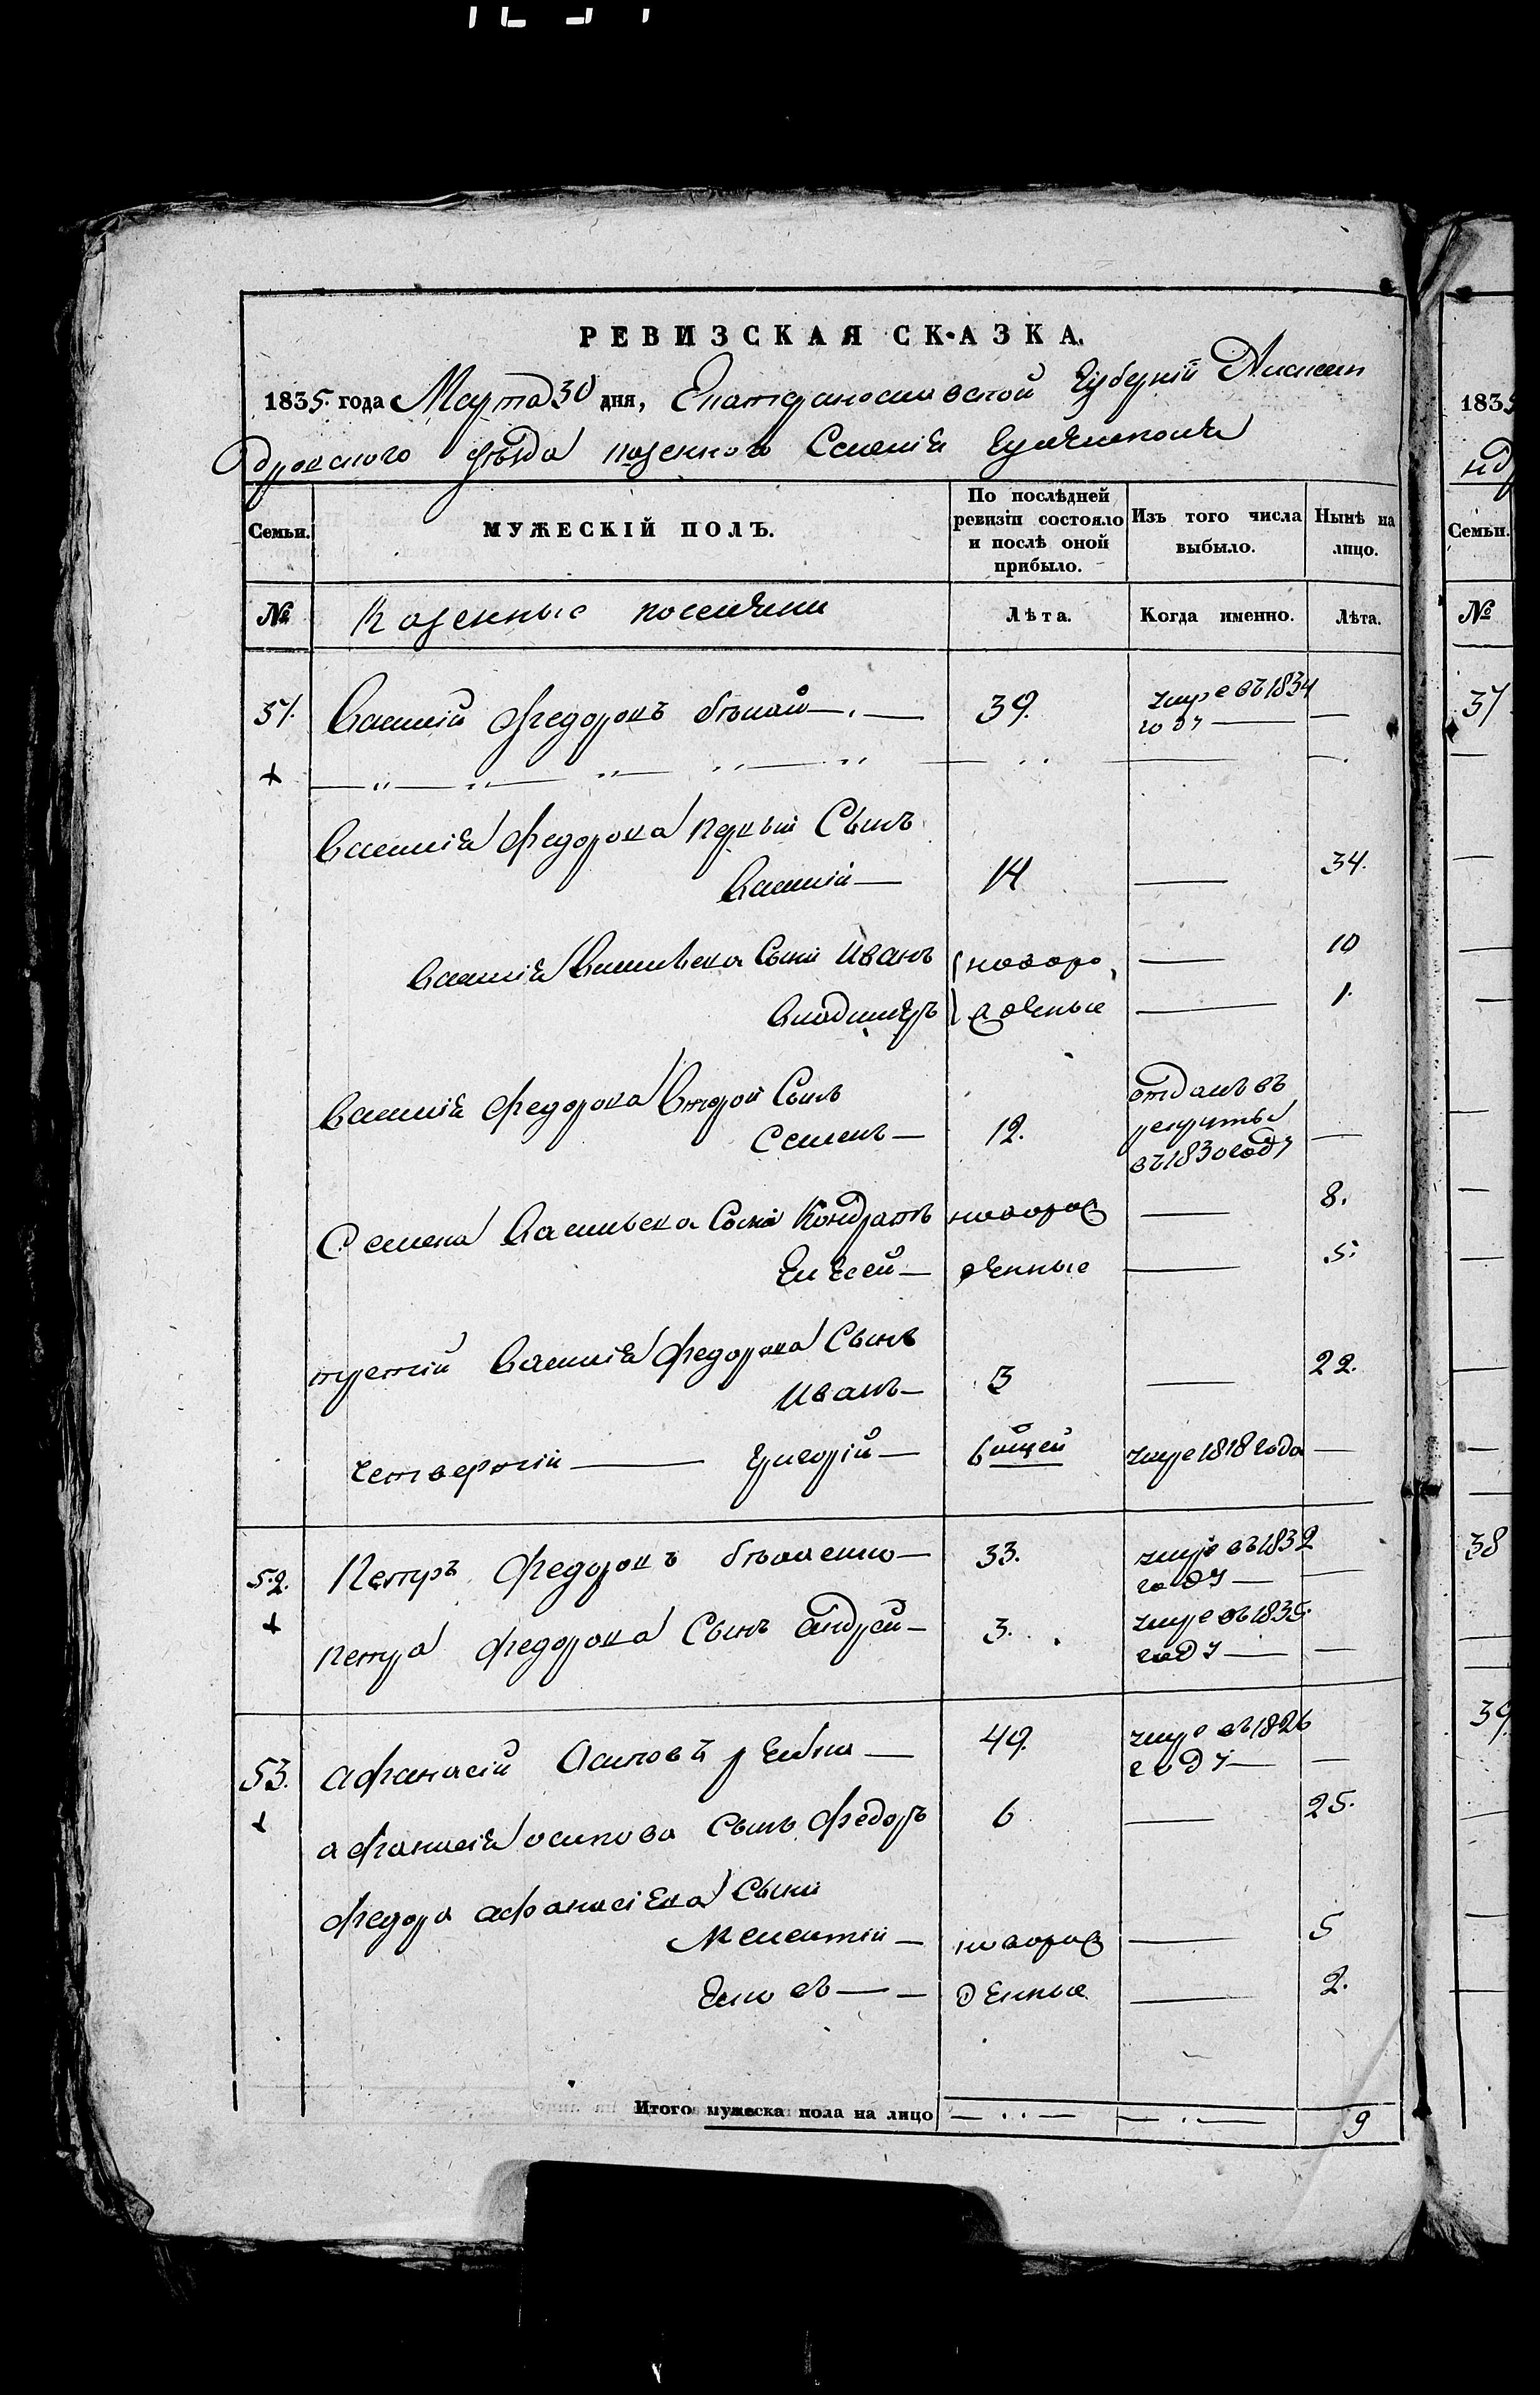 РЕВИЗСКАЯ СКАЗКА.
1835 года Марта 30 дня, Екатеринославской Губерніи Алексан
дровского уѣзда казенного Селенія
Семьи. МУЖЕСКІЙ ПОЛЪ. По послѣдней ревизіи состояло и послѣ оной прибыло. Изъ того числа выбыло. Нынѣ на лицо.
№ Казенные поселяни Лѣта. Когда именно. Лѣта.
51. Василій Федоровъ бѣлай 39. умре въ 1834
году
Василія Федорова первый Сынъ
Василій 14 34.
Василія Васильева Сыни Иванъ новоро 10
Владимеръ жденые 1.
Василія Федорова Второй Сынъ
Семенъ 12. отданъ въ
рекруты
въ 1830 году
Семена Васильева Сыни Кондратъ новорож 8.
Елесей денные 5.
третій Василія Федорова Сынъ
Иванъ 3 22.
четвертій Григорій умре 1818 года
52. Петръ Федоровъ бѣленко 33. умре въ 1832
году
Петра Федорова Сынъ Андрей 3. умре въ 1835
году
53. Афанасій Осиповъ 49. умре въ 1826
году
Афанасія осипова Сынъ Федоръ 6 25.
Федора Афанасіева Сыни
Мелентій новорож 5
денные 2.
Итого мужеска пола на лицо 9
1835
нд
Семьи.
№
37
38
39